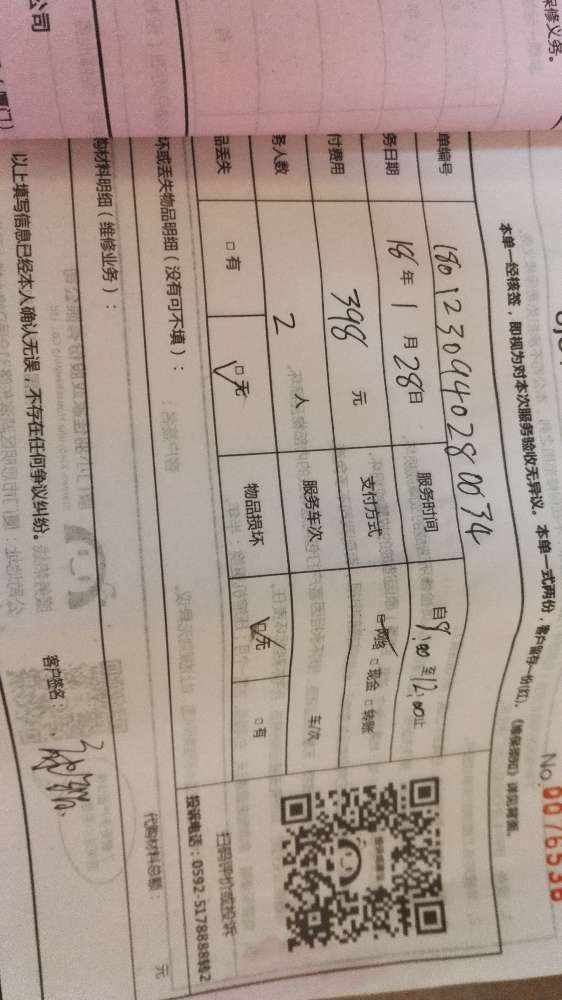 公司
保修义务。
No.0076536
本单一经核签，即视为对本次服务验收无异议。本单一式两份，客户留存一份(红)，《维保须知》详见背面。
单编号 180123094028 0034
务日期 18 年 1 月 28 日 服务时间 自 8:00 至 12:00 止
付费用 398 元 支付方式 □网络 □现金 □转账
务人数 2 人 服务车次 车/次
品丢失 □有 □无 物品损坏 □无 □有
扫码评价或投诉
投诉电话：0592-5178888转2
坏或丢失物品明细（没有可不填）：
购材料明细（维修业务）：
代购材料总额： 元
以上填写信息已经本人确认无误，不存在任何争议纠纷。 客户签名：